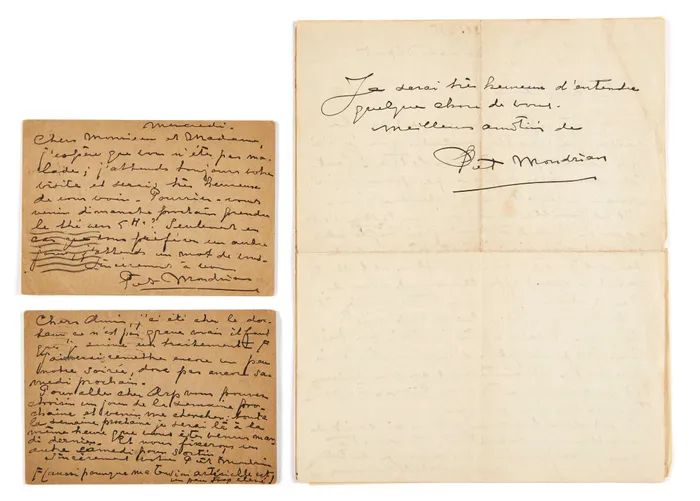 Mercredi.
Chers Monsieur et Madame,
j'espère que vous n'êtes pas ma-
lades; j'attends toujours votre
visite et serais très heureuse
de vous voir. Pourriez-vous
venir dimanche prochain prendre
le thé vers 5 H.? Seulement en
cas que vous préférez un autre
jour j'attends un mot de vous.
Sincèrement à vous
Piet Mondrian
Chers Amis, j'ai été chez le doc-
teur ce n'est pas grave mais il faut
que je suive un traitement. F
remettre encore un peu
notre soirée, donc pas encore sa-
medi prochain.
Pour aller chez Arp vous pouvez
choisir un jour de la semaine pro-
chaine et venir me chercher; toute
la semaine prochaine je serai là à la
même heure que vous êtes venus mar-
di dernier. Et nous fixerons un
autre samedi pour sortir.
Sincèrement votre Piet Mondrian
F (aussi parceque ma tension artérielle est
un peu trop élevée)
Je serai très heureuse d'entendre
quelque chose de vous.
Meilleurs amitiés de
Piet Mondrian